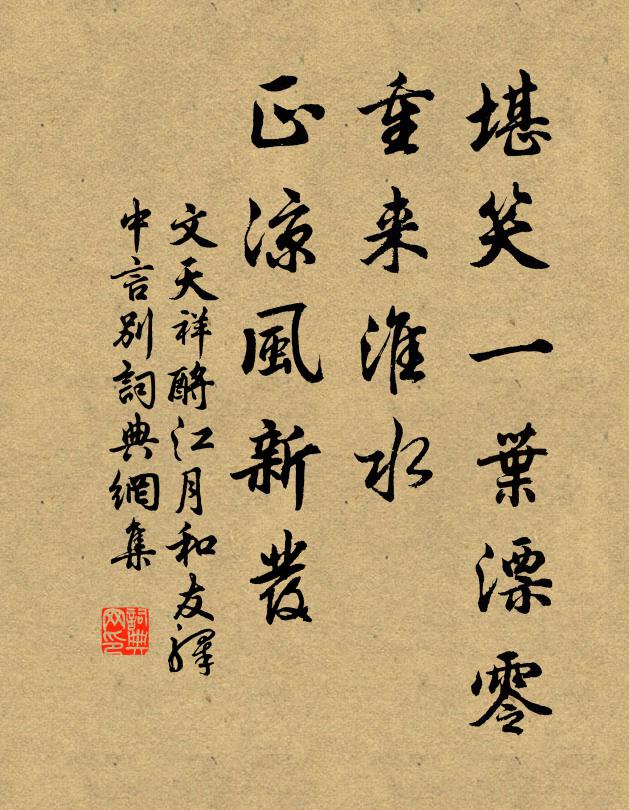 堪笑一葉漂零
重来淮水
正涼風新發
文天祥酹江月和友驛
中言别詞典網集
詞典
网印